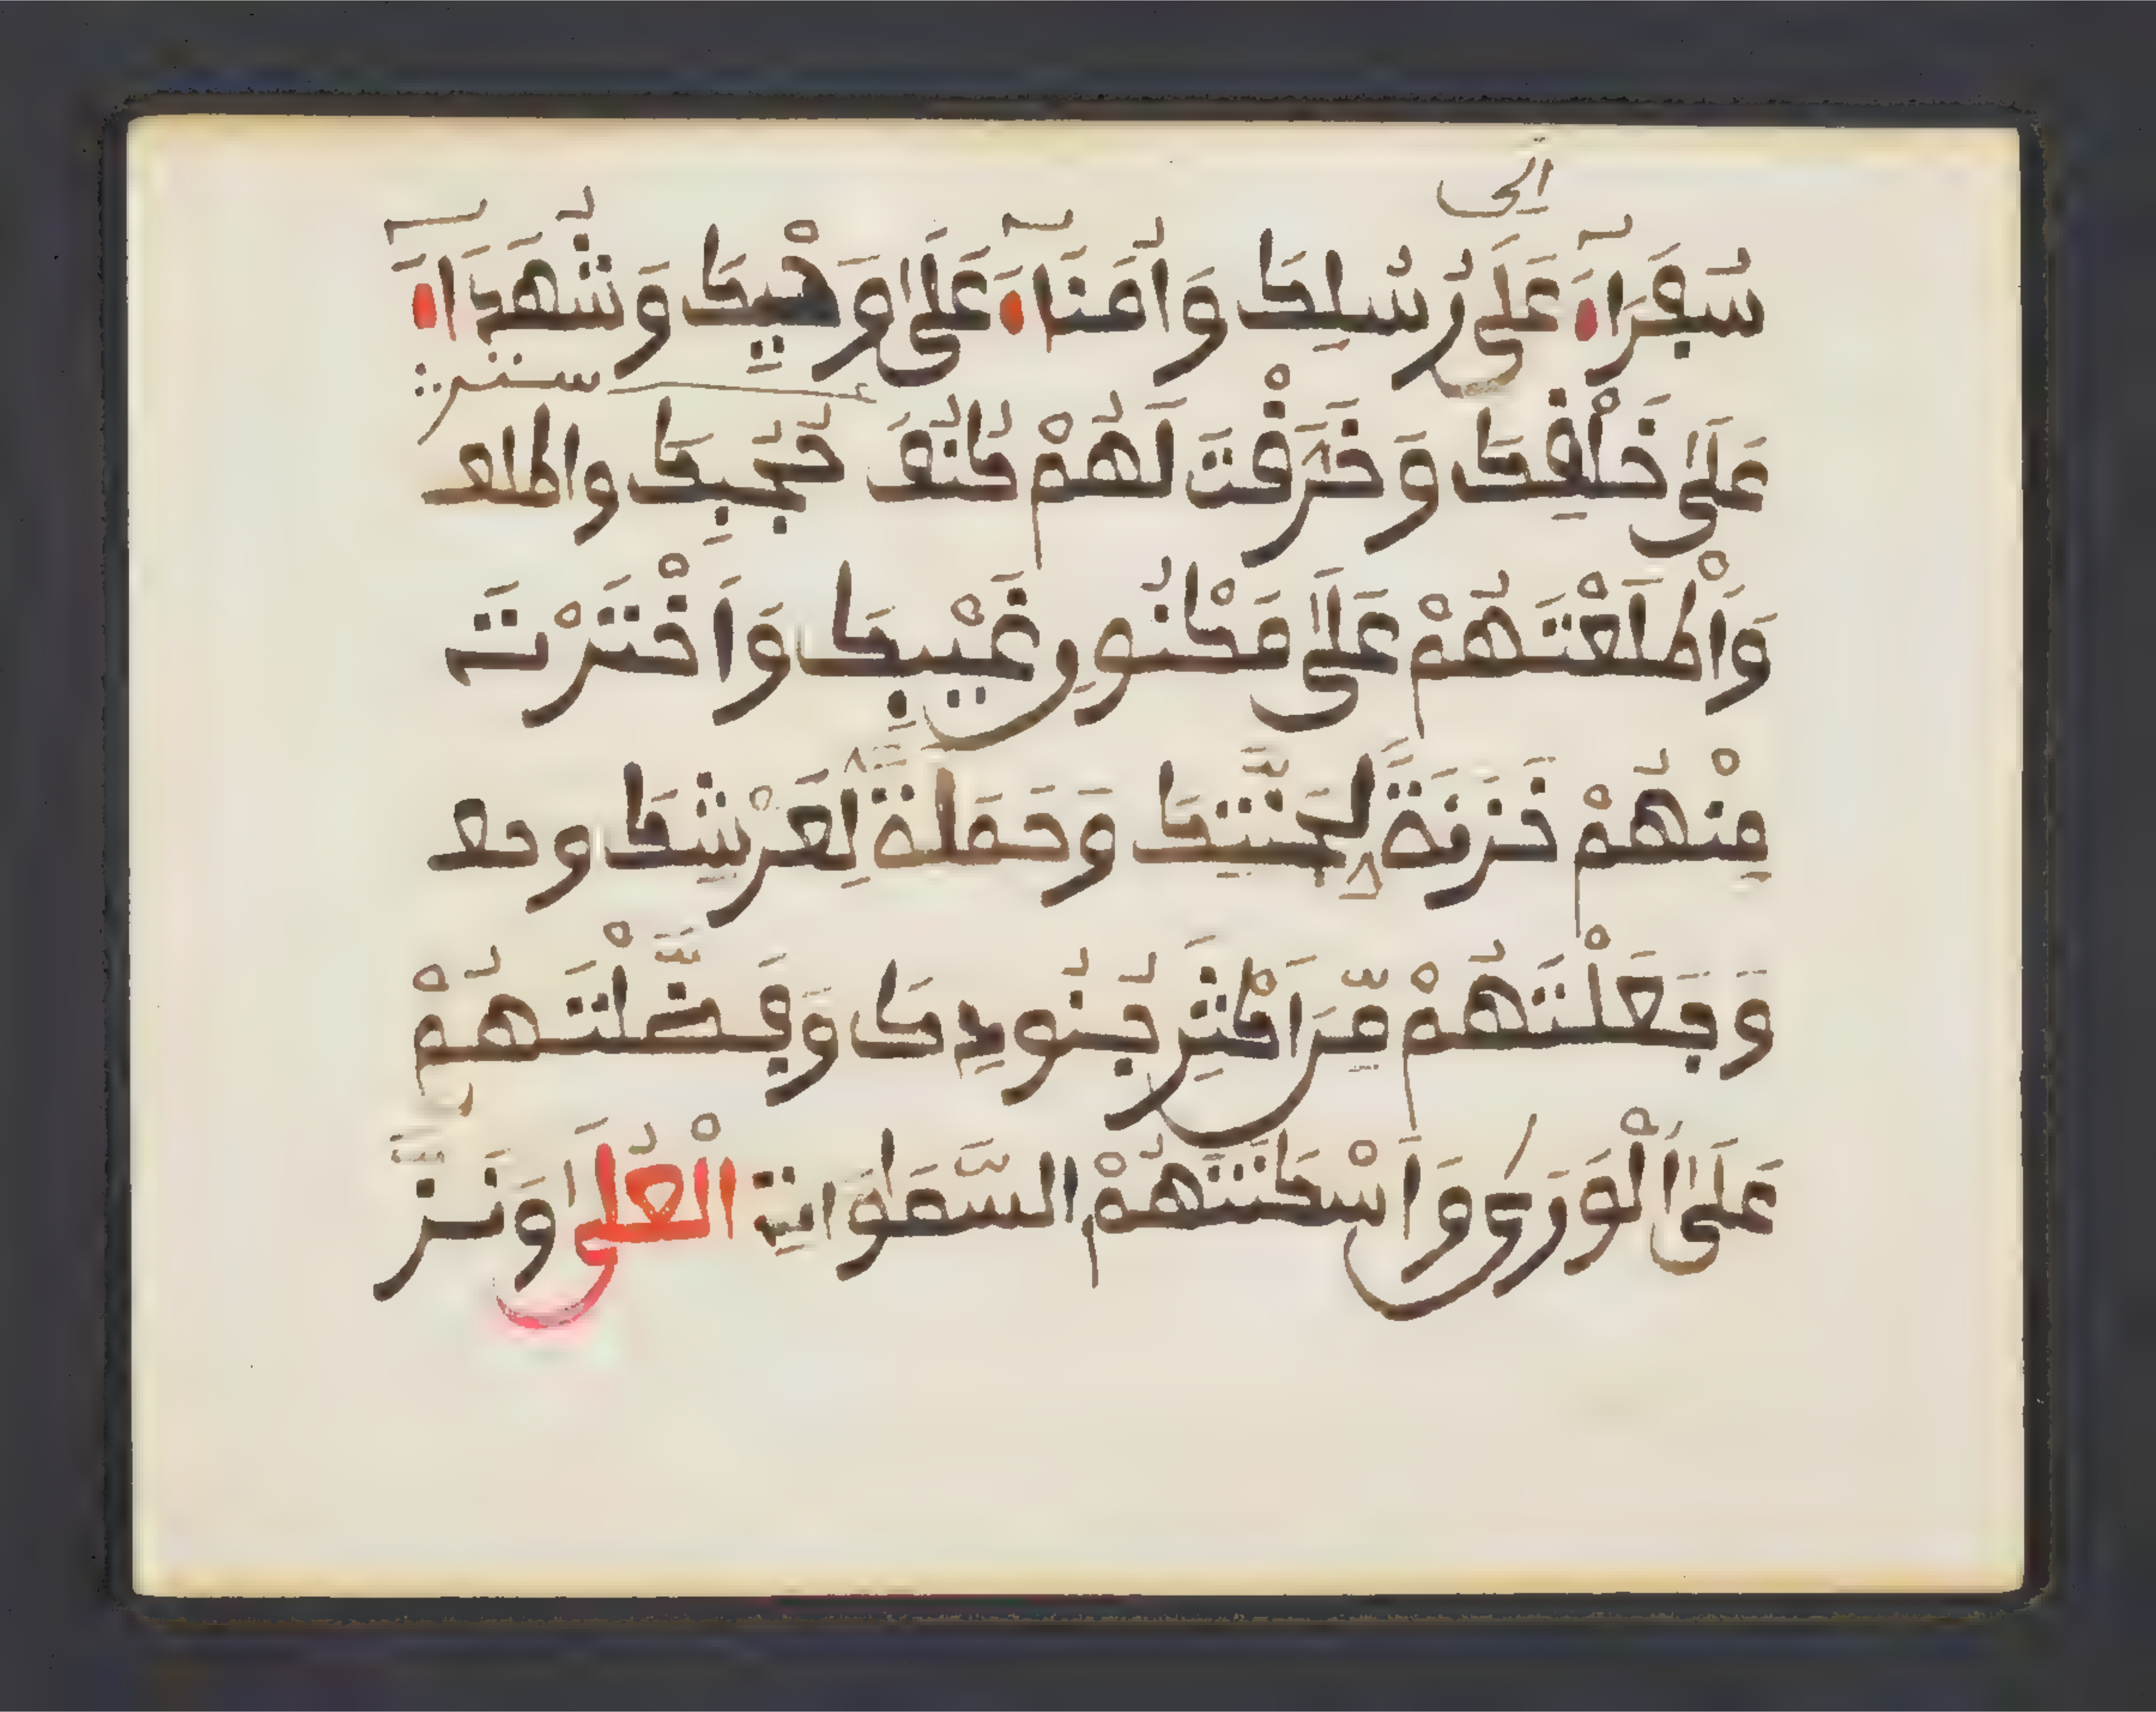 إلى
سُفَرَاءَ عَلَى رُسُلِكَ وَأُمَنَاءَ عَلَى وَحْيِكَ وَشُهَدَاءَ
ستر
عَلَى خَلْقِكَ وَخَرَّقْتَ لَهُمْ كُنُفَ حُجُبِكَ واطلع
وَأَطْلَعْتَهُمْ عَلَى مَكْنُونِ غَيْبِكَ وَاَخْتَرْتَ
مِنْهُمْ خَزَنَةً لِجَنَّتِكَ وَحَمَلَةً لِعَرْشِكَ وجع
وَجَعَلْتَهُمْ مِّنَ اَكْثَرِ جُنُودِكَ وَفَضَّلْتَهُمْ
عَلَى اَلْوَرَى وَاَسْكَنْتَهُمْ السَّمَوَاتِ الْعُلَى وَنَزَّ